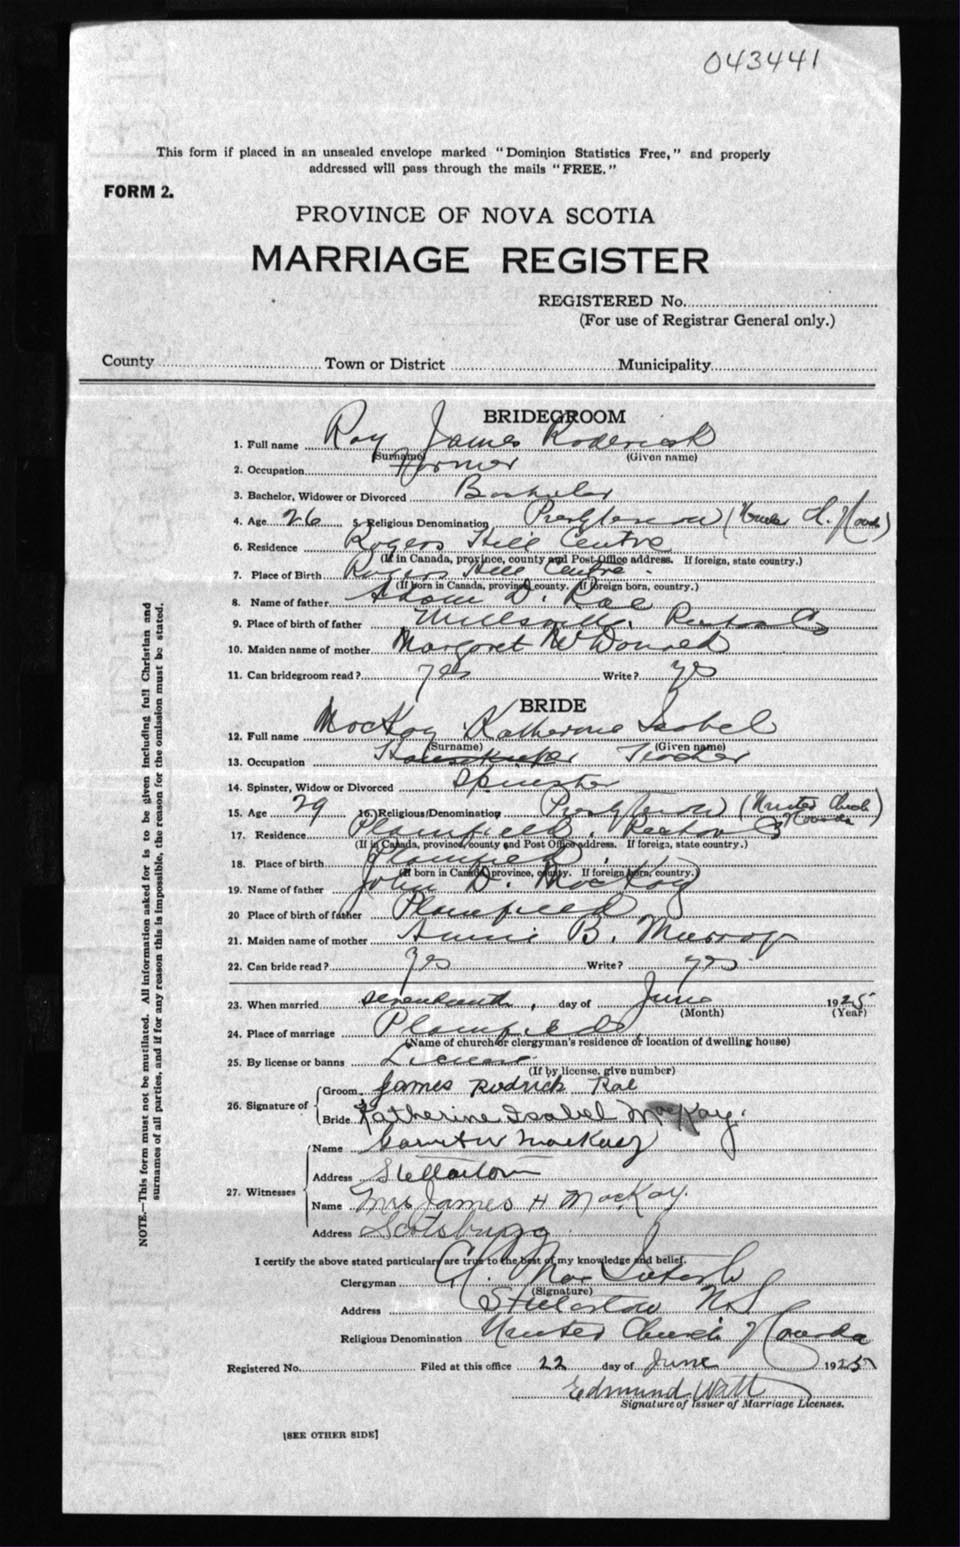 043441
This form if placed in an unsealed envelope marked "Dominion Statistics Free," and properly
addressed will pass through the mails "FREE."
FORM 2.
PROVINCE OF NOVA SCOTIA
MARRIAGE REGISTER
REGISTERED No.
(For use of Registrar General only.)
County Town or District Municipality
BRIDEGROOM
1. Full name Ray James Roderick
(Surname) (Given name)
2. Occupation Farmer
3. Bachelor, Widower or Divorced Bachelor
4. Age 26 5. Religious Denomination Presbyterian (
6. Residence Rogers Hill Centre
(If in Canada, province, county and Post Office address. If foreign, state country.)
7. Place of Birth Rogers Hill Centre
(If born in Canada, province, county. If foreign born, country.)
8. Name of father Adam D. Rae
9. Place of birth of father Millsville, Pictou Co
10. Maiden name of mother Margaret McDonald
11. Can bridegroom read? yes Write? yes
BRIDE
12. Full name MacKay Katherine Isabel
(Surname) (Given name)
13. Occupation Housekeeper Teacher
14. Spinster, Widow or Divorced Spinster
15. Age 29 16. Religious Denomination Presbyterian (United Church
Canada)
17. Residence Plainfield, Pictou Co
(If in Canada, province, county and Post Office address. If foreign, state country.)
18. Place of birth Plainfield
(If born in Canada, province, county. If foreign born, country.)
19. Name of father John D. MacKay
20 Place of birth of father Plainfield
21. Maiden name of mother Annie B. Murray
22. Can bride read? yes Write? yes
23. When married seventeenth, day of June 1925
(Month) (Year)
24. Place of marriage Plainfield
(Name of church or clergyman's residence or location of dwelling house)
25. By license or banns License
(If by license, give number)
26. Signature of Groom James Rodrick Rae
Bride Katherine Isabel MacKay.
27. Witnesses Name MacKay
Address Stellarton
Name Mrs James H MacKay.
Address Scotsburn
I certify the above stated particulars are true to the best of my knowledge and belief.
Clergyman
(Signature)
Address Stellarton N.S
Religious Denomination United Church of Canada
Registered No. Filed at this office 22 day of June 1925
Edmund Watt
Signature of Issuer of Marriage Licenses.
[SEE OTHER SIDE]
NOTE.—This form must not be mutilated. All information asked for is to be given including full Christian and
surnames of all parties, and if for any reason this is impossible, the reason for the omission must be stated.